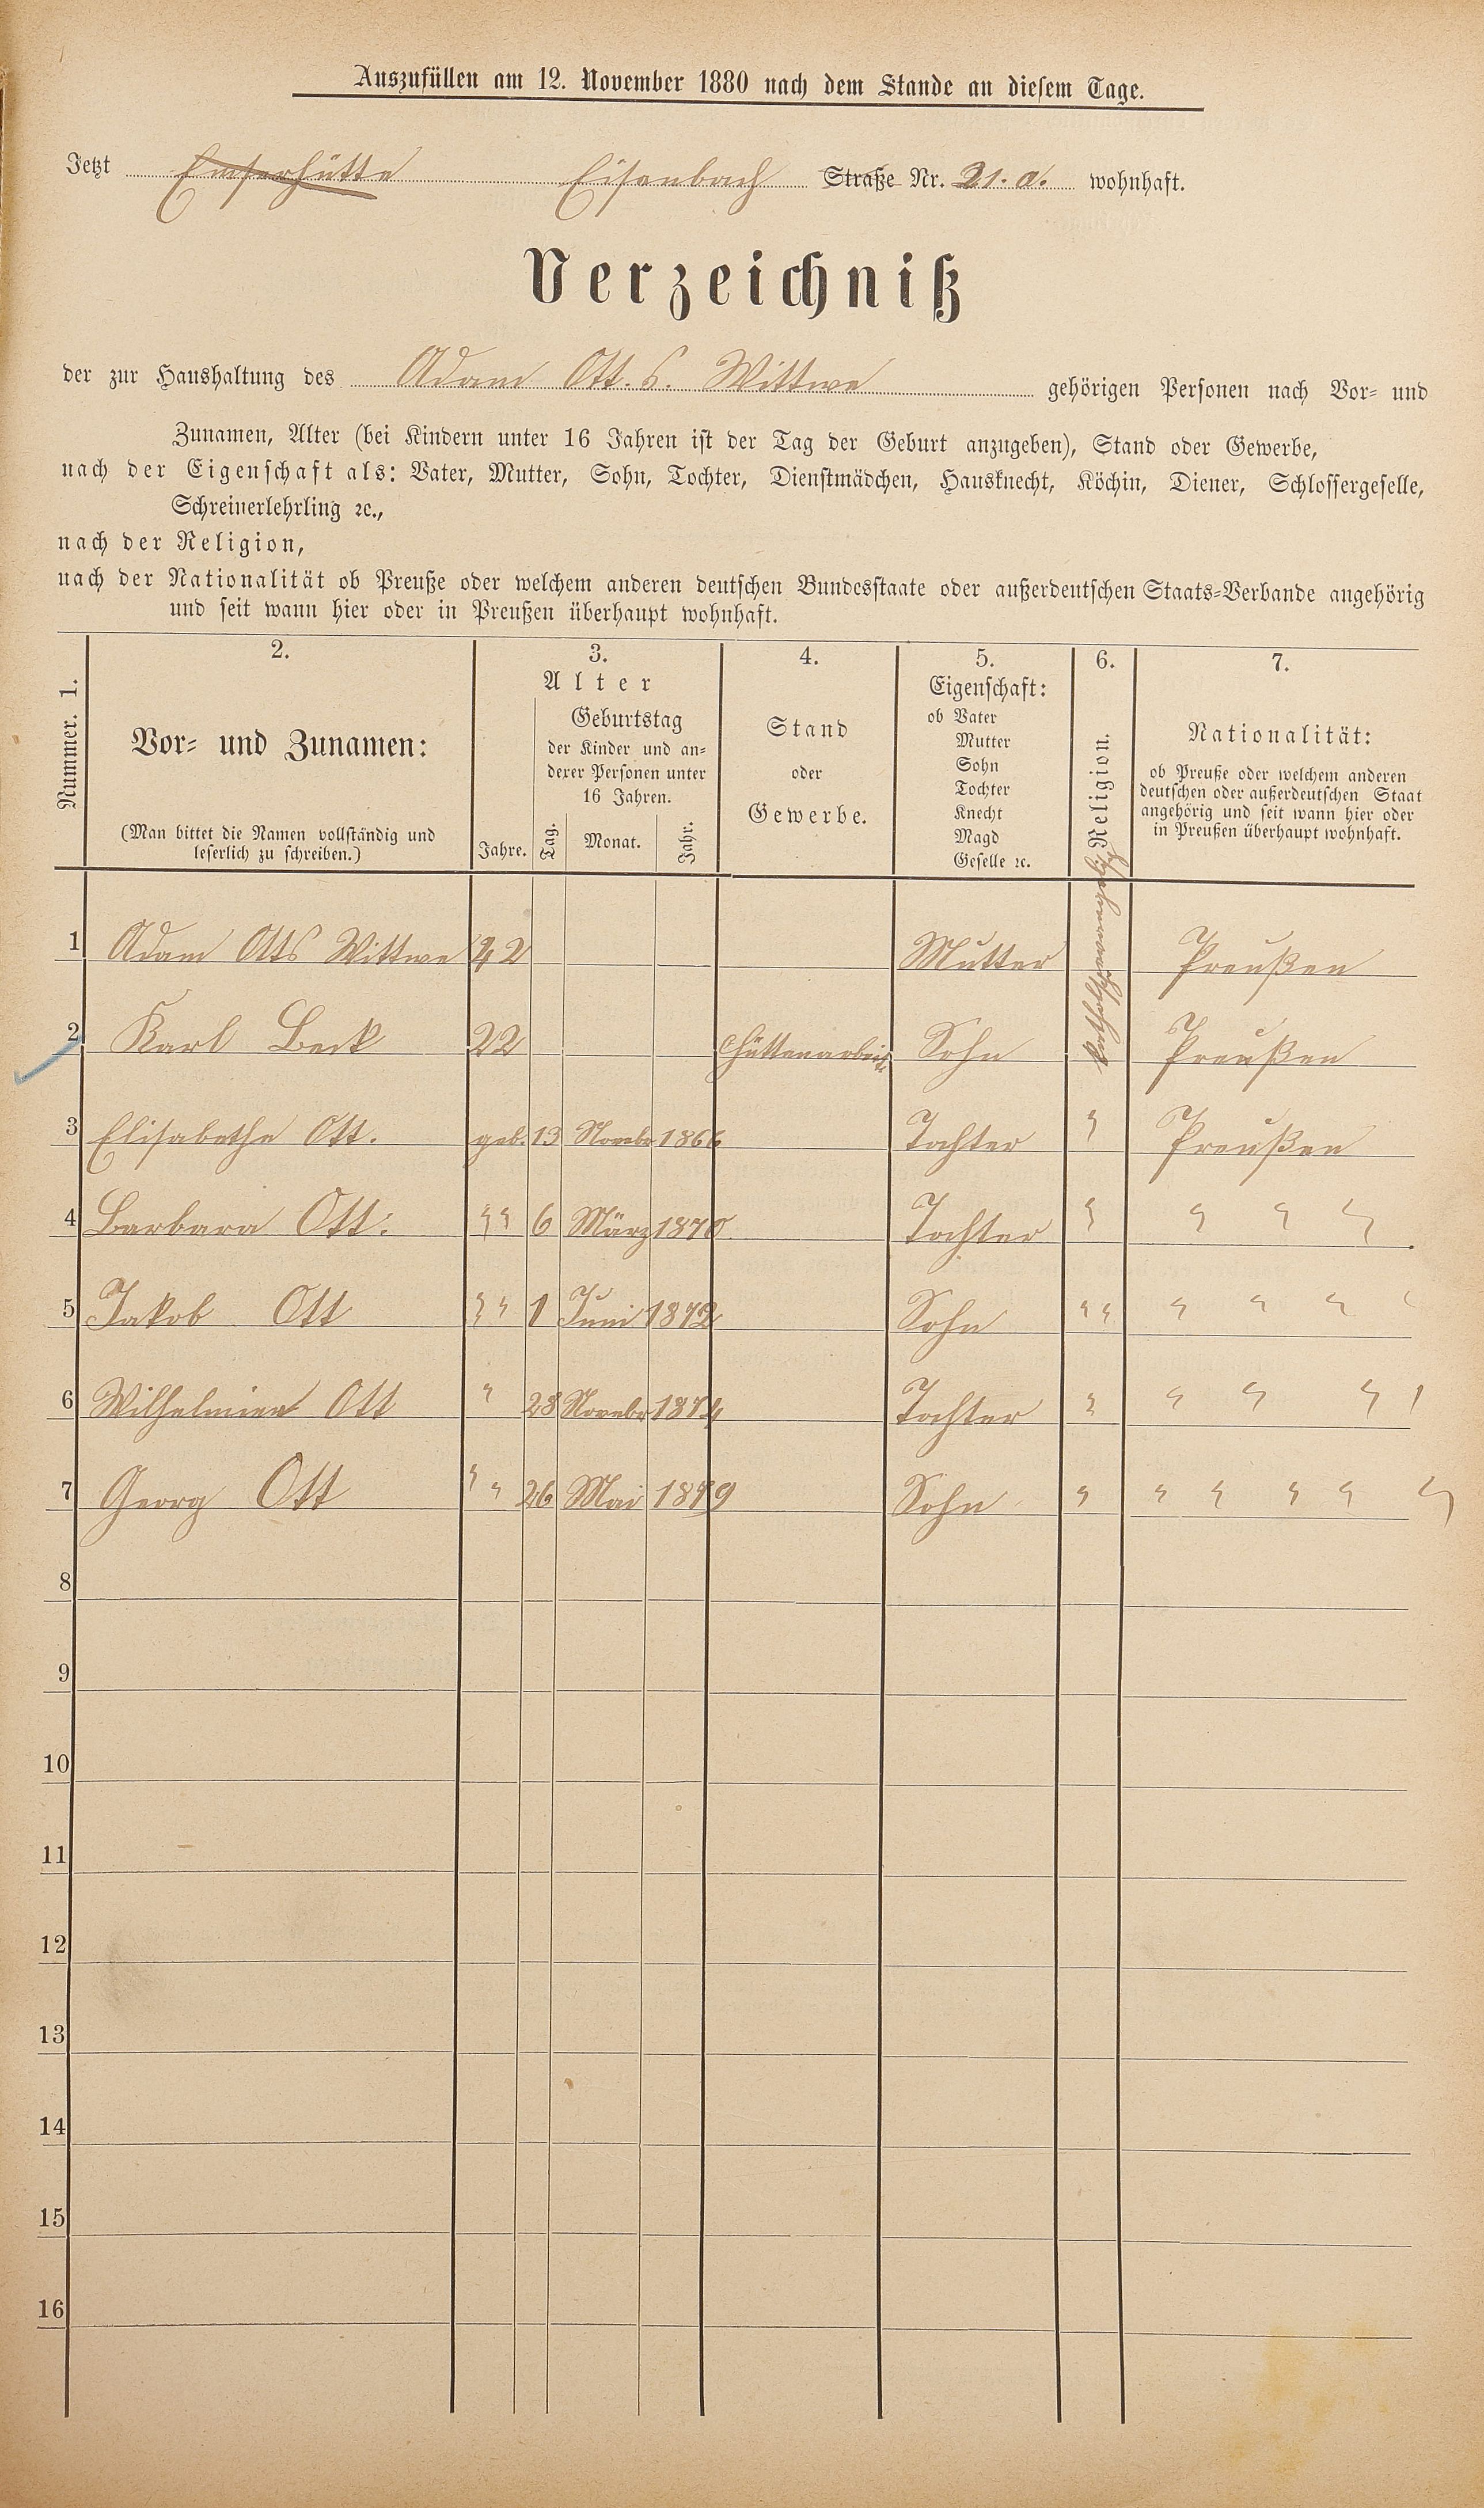 Auszufüllen am 12. November 1880 nach dem Stande an diesem Tage.
Jetzt Emserhütte Eisenbach Straße Nr. 21. a. wohnhaft.
Verzeichniß
der zur Haushaltung des Adam Ott. s. Wittwe gehörigen Personen nach Vor- und
Zunamen, Alter (bei Kindern unter 16 Jahren ist der Tag der Geburt anzugeben), Stand oder Gewerbe,
nach der Eigenschaft als: Vater, Mutter, Sohn, Tochter, Dienstmädchen, Hausknecht, Köchin, Diener, Schlossergeselle,
Schreinerlehrling ꝛc.,
nach der Religion,
nach der Nationalität ob Preuße oder welchem anderen deutschen Bundesstaate oder außerdeutschen Staats-Verbande angehörig
und seit wann hier oder in Preußen überhaupt wohnhaft.
Nummer. 1.
2.
Vor- und Zunamen:
(Man bittet die Namen vollständig und
leserlich zu schreiben.)
3.
Alter
Jahre.
Geburtstag
der Kinder und an-
derer Personen unter
16 Jahren.
Tag. Monat. Jahr.
4.
Stand
oder
Gewerbe.
5.
Eigenschaft:
ob Vater
Mutter
Sohn
Tochter
Knecht
Magd
Geselle ꝛc.
6.
Religion.
7.
Nationalität:
ob Preuße oder welchem anderen
deutschen oder außerdeutschen Staat
angehörig und seit wann hier oder
in Preußen überhaupt wohnhaft.
1 Adam Otts Wittwe 42 Mutter Preußen
2 Karl Beck 22 Hüttenarbeit. Sohn Preußen
3 Elisabethe Ott. geb. 13 Novebr 1866 Tochter " Preußen
4 Barbara Ott. " " 6 März 1870 Tochter " " " "
5 Jakob Ott " " 1 Juni 1872 Sohn " " " " "
6 Wilhelmien Ott " 28 Novebr 1874 Tochter " " " "
7 Georg Ott " " 26 Mai 1879 Sohn " " " " " "
8
9
10
11
12
13
14
15
16